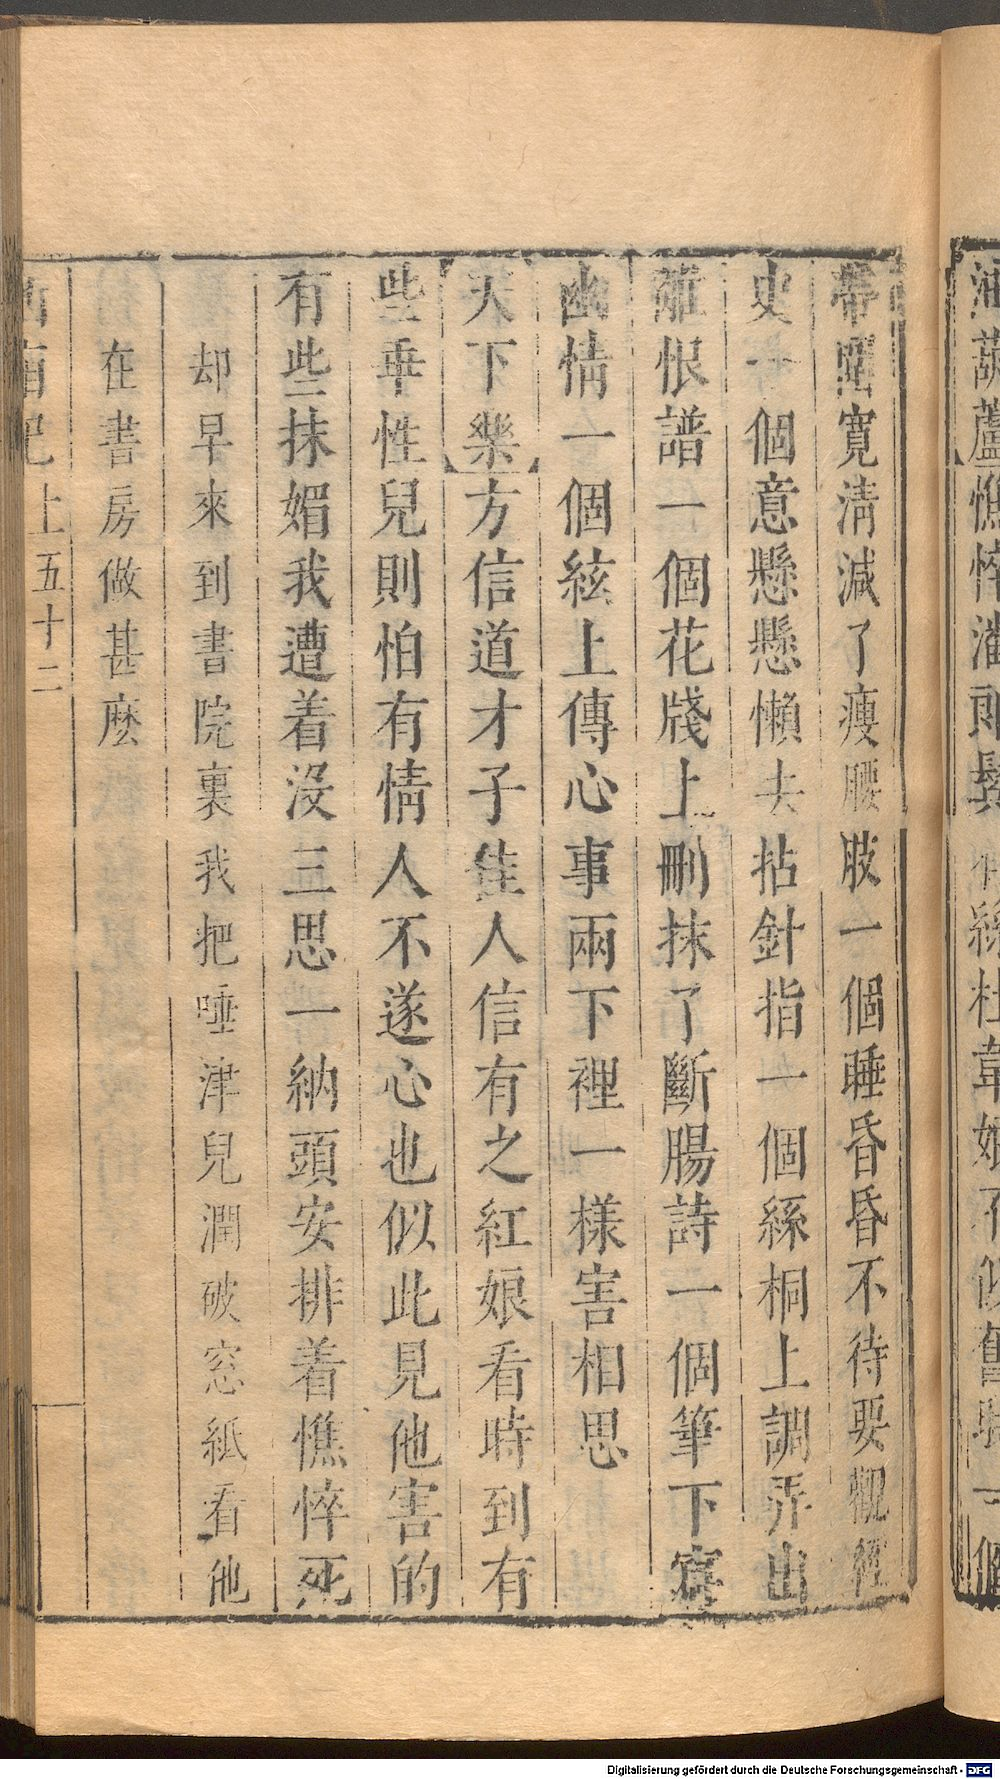 油葫蘆憔悴潘郎鬢有絲杜韋娘不似舊時一個
帶圍寬淸減了瘦腰肢一個睡昏昏不待要觀經
史一個意懸懸懶去拈針指一個絲桐上調弄出
離恨譜一個花牋上刪抹了斷腸詩一個筆下寫
幽情一個絃上傳心事兩下裡一樣害相思
天下樂方信道才子佳人信有之紅娘看時到有
些乖性兒則怕有情人不遂心也似此見他害的
有些抹媚我遭着沒三思一納頭安排着憔悴死
却早來到書院裏我把唾津兒潤破窓紙看他
在書房做甚麽
西廂記 上 五十二
Digitalisierung gefördert durch die Deutsche Forschungsgemeinschaft - DFG